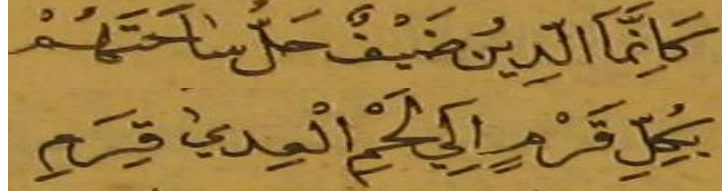 كَاَنَّمَا الدِّينُ ضَيْفٌ حَلَّ سَاحَتَهُمْ
بِكُلِّ قَرْمٍ اِلَي لَحْمِ الْعِدي قَرِمِ